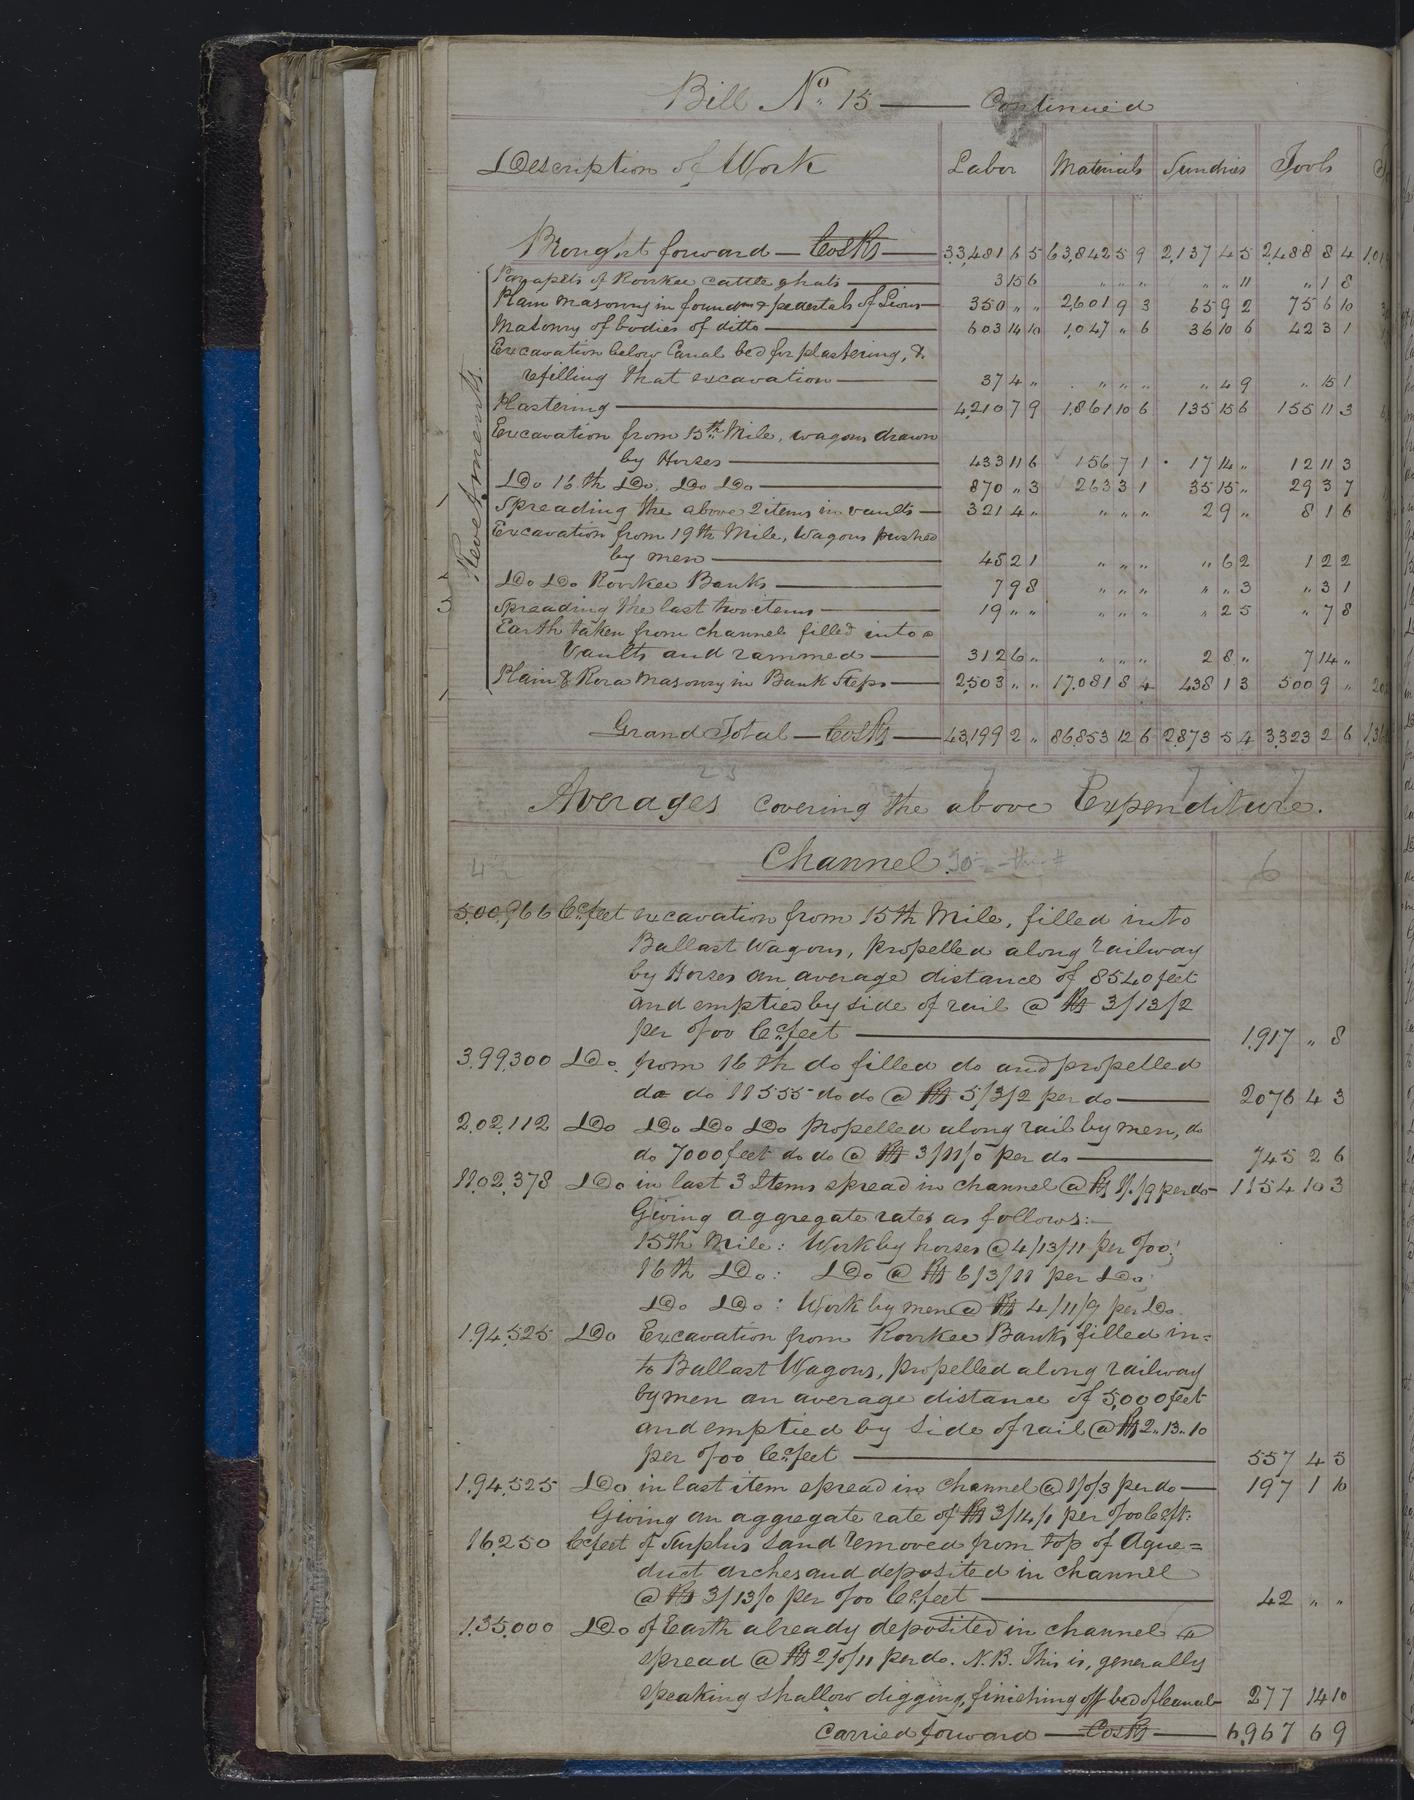 Bill No. 15 — Continued
Description of Work Labor Materials Sundries Tools
Brought forward — Co's Rs — 33,481 6 5 63,842 5 9 2,137 4 5 2,488 8 4
Revetments
Parapets of Roorkee cattle ghats — 3 15 6 " " " " " 11 " 1 8
Plain Masonry in foundn & pedestals of Lions — 350 " " 2,601 9 3 65 9 2 75 6 10
Masonry of bodies of ditto — 603 14 10 1,047 " 6 36 10 6 42 3 1
Excavation below Canal bed for plastering, &
refilling that excavation — 37 4 " " " " " 4 9 " 15 1
Plastering — 4,210 7 9 1,861 10 6 135 15 6 155 11 3
Excavation from 15th Mile, wagons drawn
by Horses — 433 11 6 156 7 1 17 14 " 12 11 3
Do 16th Do. Do Do — 870 " 3 263 3 1 35 15 " 29 3 7
Spreading the above 2 items in vaults — 321 4 " " " " 2 9 " 8 1 6
Excavation from 19th Mile, Wagons pushed
by men — 45 2 1 " " " " 6 2 1 2 2
Do Do Roorkee Banks — 7 9 8 " " " " " 3 " 3 1
Spreading the last two items — 19 " " " " " " 2 5 " 7 8
Earth taken from channel filled into
Vaults and rammed — 312 6 " " " " 2 8 " 7 14 "
Plain & Kora Masonry in Bank Steps — 2,503 " " 17,081 8 4 438 1 3 500 9 "
Grand Total — Co's Rs — 43,199 2 " 86,853 12 6 2,873 5 4 3,323 2 6
Averages covering the above Expenditure.
Channel
5,00,966 Cc. feet excavation from 15th Mile, filled into
Ballast Wagons, propelled along railway
by Horses an average distance of 8540 feet
and emptied by side of rail @ Rs 3/13/2
per %00 Cc. feet — 1,917 " 8
3,99,300 Do. from 16th do filled do and propelled
do do 11555 do do @ Rs 5/3/2 per do — 2076 4 3
2,02,112 Do Do Do Do propelled along rail by men, do
do 7000 feet do do @ Rs 3/11/0 per do — 745 2 6
11,02,378 Do in last 3 Items spread in channel @ Rs 1/./9 per do — 1154 10 3
Giving aggregate rates as follows:—
15th Mile: Work by horses @ 4/13/11 per %00
16th Do: Do @ Rs 6/3/11 per Do
Do Do: Work by men @ Rs 4/11/9 per Do.
1,94,525 Do Excavation from Roorkee Banks filled in=
to Ballast Wagons, propelled along railway
by men an average distance of 5,000 feet
and emptied by side of rail @ Rs 2..13..10
per %00 Cc. feet — 557 4 5
1,94,525 Do in last item spread in channel @ 1/0/3 per do — 197 1 10
Giving an aggregate rate of Rs 3/14/1 per %00 Cc. ft:
16,250 Cc. feet of Surplus Sand removed from top of Aque=
duct arches and deposited in channel
@ Rs 3/13/0 per %00 Cc. feet — 42 " "
1,35,000 Do of Earth already deposited in channel &
spread @ Rs 2/0/11 per do. N.B. This is, generally
speaking shallow digging, finishing off bed of Canal — 277 14 10
Carried forward — Co's Rs — 6,967 6 9